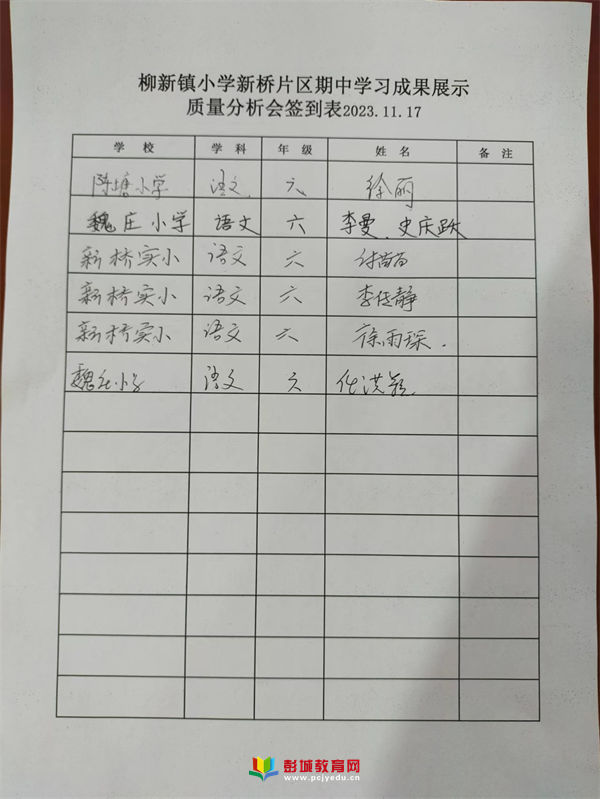 柳新镇小学新桥片区期中学习成果展示
质量分析会签到表2023.11.17
学校 学科 年级 姓名 备注
陈塘小学 语文 六 徐丽
魏庄小学 语文 六 李曼、史庆跃
新桥实小 语文 六 付苗苗
新桥实小 语文 六 李传静
新桥实小 语文 六 徐雨琛.
魏庄小学 语文 六
彭城教育网
www.pcjyedu.cn